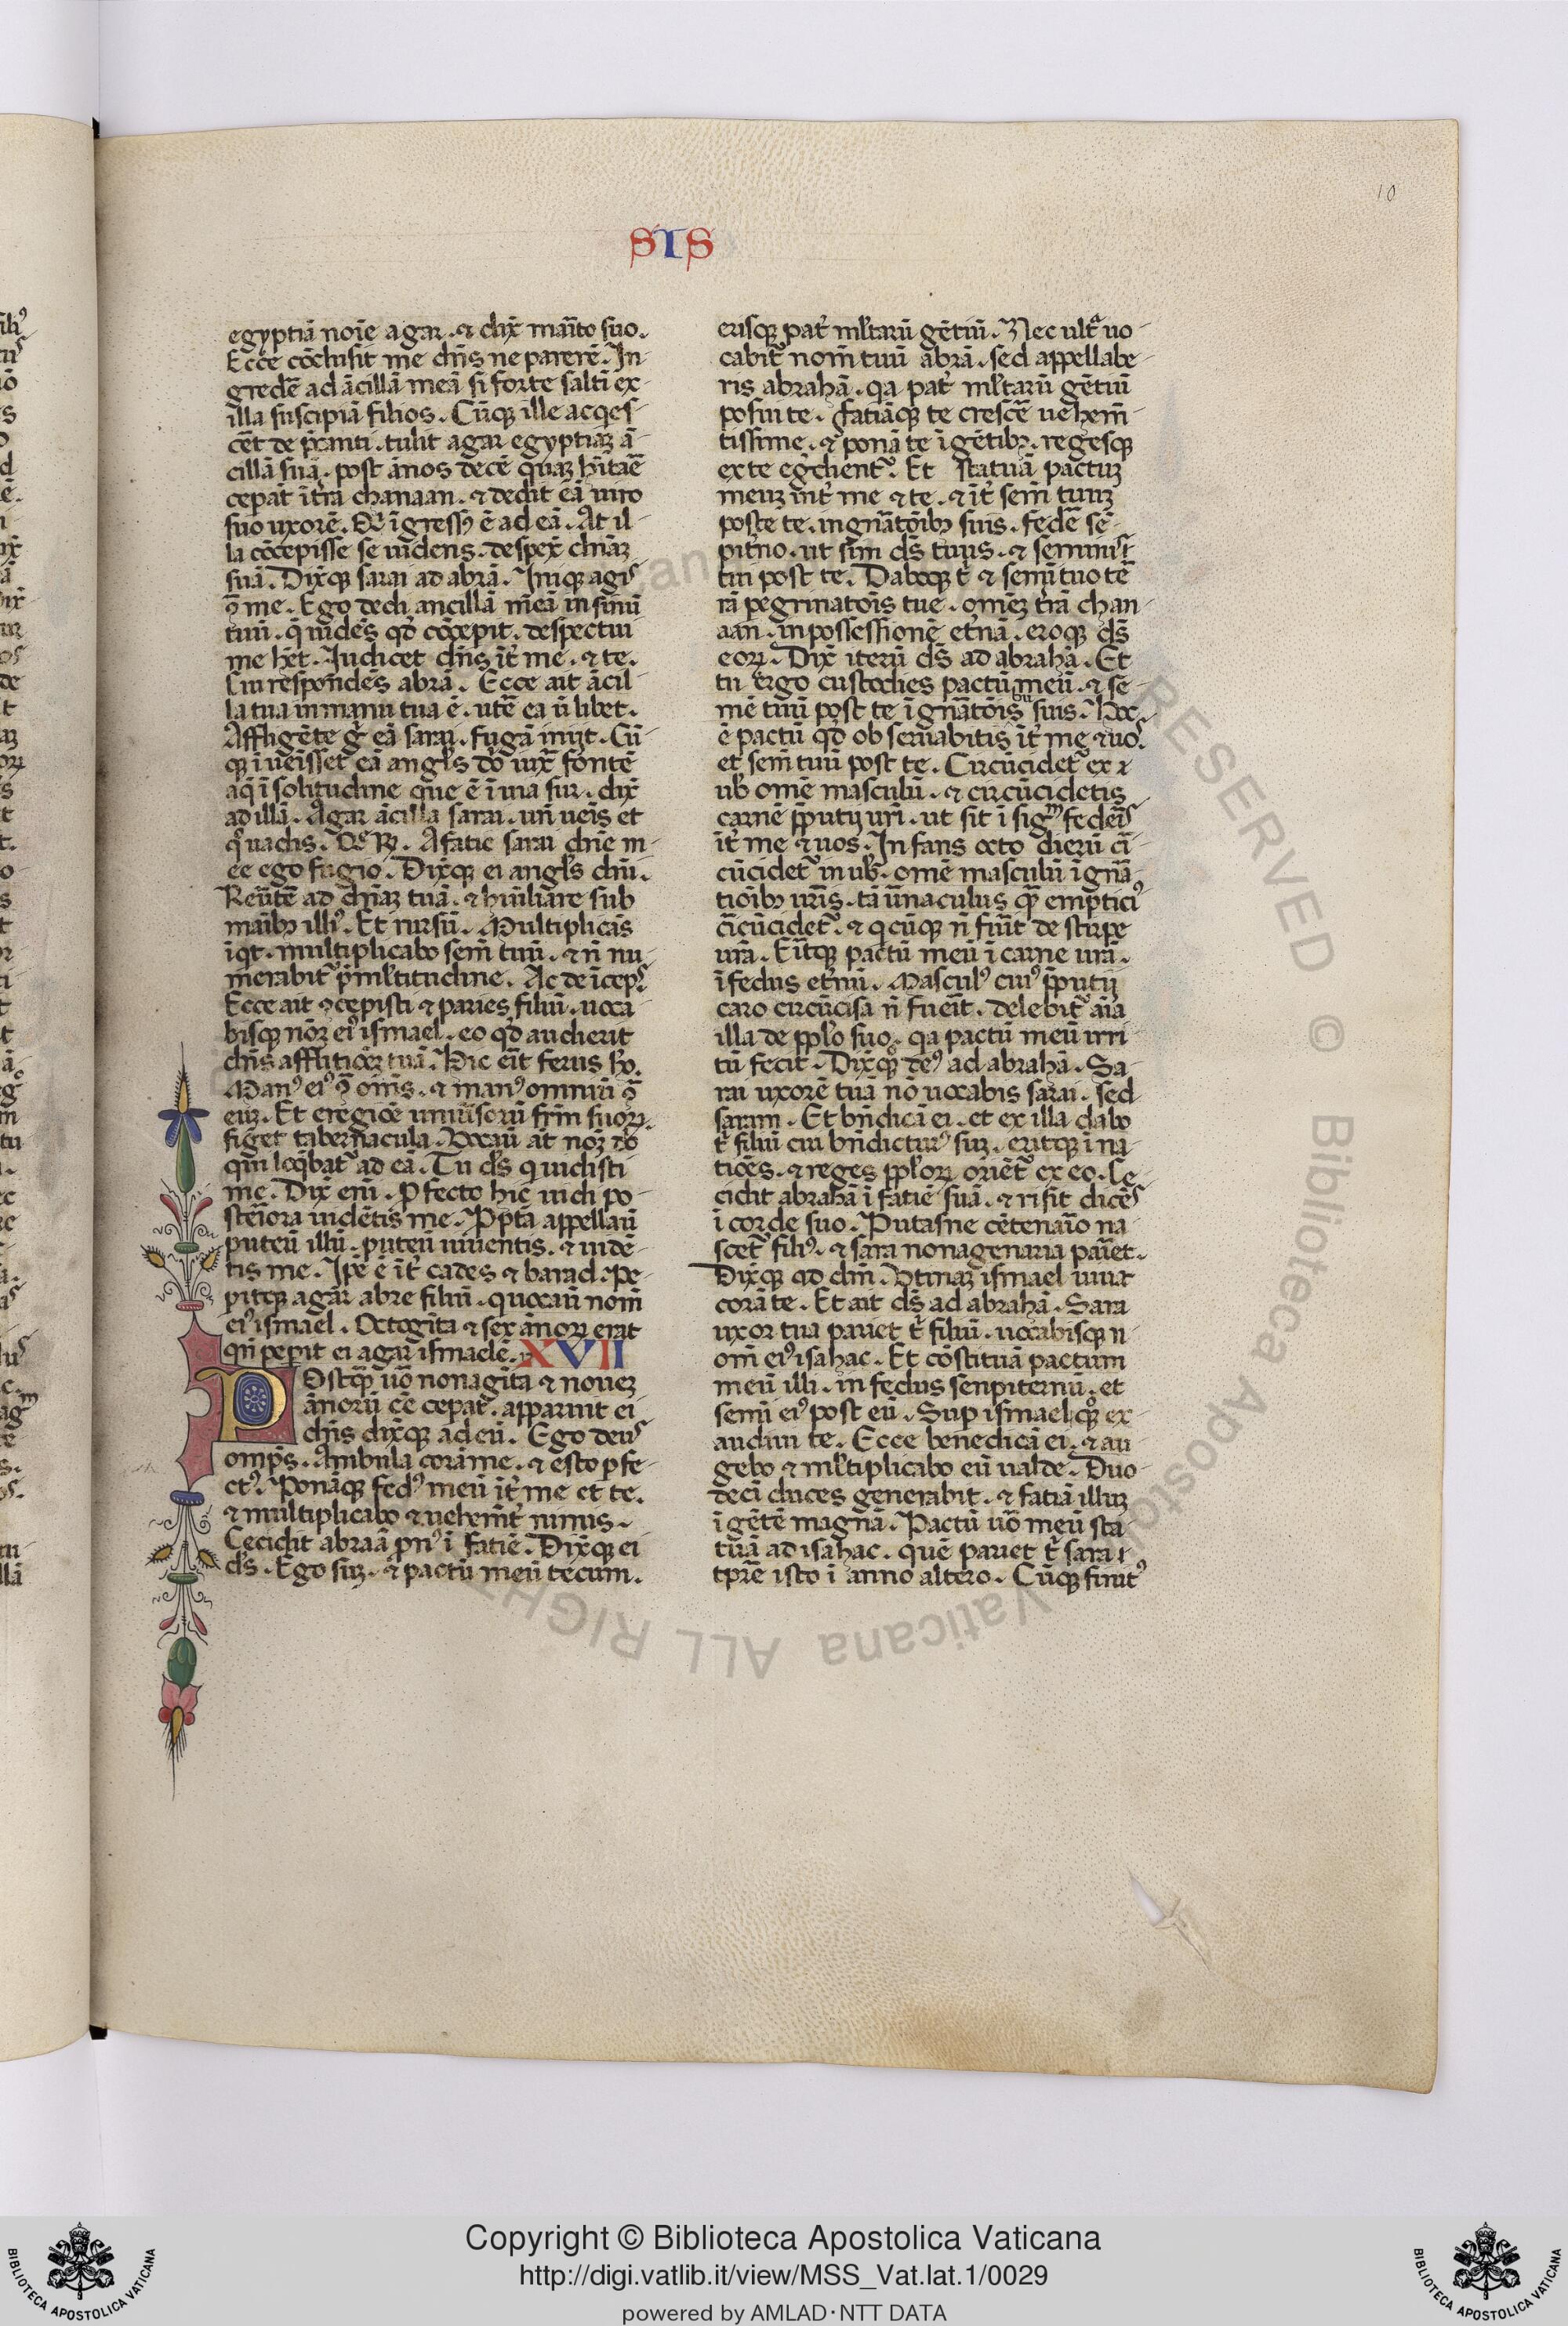 10
SIS
egyptiā noīe agar. ⁊ dix̄ marito suo.
Ecce cōclusit me dn̄s ne parerē. In-
gredē ad ācillā meā si forte saltī ex-
illa suscipiā filios. Cūq̢ ille acqes-
cēt de p̄canti. tulit agar egyptiaꝫ ā-
cillā suā. post ānos decē quaꝫ hītaē
cepāt ītr̄a chanaan. ⁊ dedit eā uiro
suo uxorē. Qͥ īgressꝰ ē ad eā. At il-
la cōcepisse se uidens. despex̄ dn̄aꝫ
suā. Dix̄q̢ sarai ad abrā. Iniq̢ agis
ꝯ̄ me. Ego dedi ancillā meā in sinū
tuū. q̄ uidēs qđ cōcepit. despectui
me hēt. Iudicet dn̄s īt̄ me. ⁊ te.
Cui respondēs abrā. Ecce ait ācil-
la tua in manu tua ē. utē ea ū libet.
Affligēte gͦ eā sarai. fugā iniit. Cū-
q̢ īueīsset eā angl̄s dn̄i iux̄ fontē
aq̄ ī solitudine que ē ī uia sur. dix̄
ad illā. Agar ācilla sarai. un̄ ueīs et
qͦ uadis. Qͥ R͂. A facie sarai dn̄e m-
ee ego fugio. Dix̄q̢ ei angl̄s dn̄i.
Reūtē ad dn̄aꝫ tuā. ⁊ humiliare sub
maībꝫ illiꝰ. Et rursū. Multiplicās
īqt. multiplicabo sem̄ tuū. ⁊ n̄ nu-
merabit᷑ p̄ ml̄titudine. Ac deīceps.
Ecce ait ꝯcepisti ⁊ paries filiū. uoca
bisq̢ noꝫ eiꝰ ismael. eo qđ audierit
dn̄s afflictiōeꝫ tuā. Hic eīt ferus hō.
Manꝰ eiꝰ ꝯ̄ om̄s. ⁊ manꝰ omniū ꝯ̄
euꝫ. Et eregiōe uniūsorū fr̄m suoꝝ.
figet tabernacula. Uocaū at̄ noꝫ dn̄i
qui loq̄bat᷑ ad eā. Tu ds̄ q uidisti
me. Dix̄ enī. Pfecto hic uidi po-
steriora uidētis me. Ppt̄ā appellaū
puteū illū. puteū uiuentis. ⁊ uidē-
tis me. Ip̄e ē īt̄ cades ⁊ barad. Pe-
pitq̢ agar abre filiū. q uocaū nom̄
eiꝰ ismael. Octogīta ⁊ sex ānoꝝ erat
qn̄ pepit ei agar ismaelē. XVII
POstq̢ uō nonagīta ⁊ noueꝫ
ānorū ēē cepat᷑. apparuit ei
dn̄s dix̄q̢ ad eū. Ego deus
omp̄s. Ambula corā me. ⁊ esto pfe-
ctꝰ. Ponāq̢ fedꝰ meū īt̄ me et te.
⁊ multiplicabo ⁊ uehem̄t̄ nimis.
Cecidit abraā pn̄ꝰ ī faciē. Dix̄q̢ ei
ds̄. Ego suꝫ. ⁊ pactū meū tecum.
erisq̢ pat̄ ml̄tarū gētiū. Nec ult̄ uo-
cabit᷑ nom̄ tuū abrā. sed appellabe-
ris abrahā. qa pat̄ ml̄tarū gētiū
posui te. Faciāq̢ te crescē uehem̄-
tissime. ⁊ ponā te ī gētibꝫ. regesq̢
ex te egdient᷑. Et statuā pactuꝫ
meuꝫ int̄ me ⁊ te. ⁊ īt̄ sem̄ tuuꝫ
poste te. in gn̄atōibꝫ suis. fedē sē-
pit̄no. ut sim ds̄ tuus. ⁊ seminis
tui post te. Daboq̢ t̄ ⁊ semī tuo tē
rā pegrinatōis tue. omēꝫ tr̄ā chan-
aan. in possessionē et̄nā. eroq̢ ds̄
eoꝝ. Dix̄ iterū ds̄ ad abrahā. Et
tu ergo custodies pactū meū. ⁊ se-
mē tuū post te ī gn̄atōis suis. Hoc
ē pactū qđ obseruabitis īt̄ me ⁊ uos.
et sem̄ tuū post te. Circūcidet᷑ ex
ub̄ omē masculū. ⁊ circūcidetis
carnē p̄putij ur̄i. ut sit ī sigm̄ federis
īt̄ me ⁊ uos. Infans octo dierū cī-
cūcidet᷑ in ub̄. omē masculū ī gn̄a-
tiōibꝫ ur̄is. tā ūnaculus q̢ empticiꝰ
cīcūcidet᷑. ⁊ qcūq̢ n̄ fuīt de stirpe
ur̄a. Eītq̢ pactū meū ī carne ur̄a.
ī fedus et̄nū. Masculꝰ cuiꝰ p̄putij
caro circūcisa n̄ fueīt. delebit᷑ aīa
illa de ppl̄o suo. qa pactū meū irri
tū fecit. Dix̄q̢ deꝰ ad abrahā. Sa-
rai uxorē tuā nō uocabis sarai. sed
saram. Et bn̄dicā ei. et ex illa dabo
t̄ filiū cui bn̄dicturꝰ suꝫ. eritq̢ ī na-
tiōes. ⁊ reges ppl̄oꝝ oriēt᷑ ex eo. Ce-
cidit abrahā ī faciē suā. ⁊ risit dicēs
ī corde suo. Putasne cētenaīo na-
scet᷑ filiꝰ. ⁊ sara nonagenaria pariet.
Dix̄q̢ ad dm̄. Utinaꝫ ismael uiuat
corā te. Et ait ds̄ ad abrahā. Sara
uxor tua pariet t̄ filiū. uocabisq̢ n-
om̄ eiꝰ isahac. Et cōstituā pactum
meū illi. in fedus senpiternū. et
semī eiꝰ post eū. Sup ismael qͦq̢ ex-
audiui te. Ecce benedicā ei. ⁊ au-
gebo ⁊ ml̄tiplicabo eū ualde. Duo-
decī duces generabit. ⁊ faciā illuꝫ
ī gētē magnā. Pactū uō meū sta
tuā ad isahac. quē pariet t̄ sara
tpr̄e isto ī anno altero. Cūq̢ finitꝰ
Copyright © Biblioteca Apostolica Vaticana
http://digi.vatlib.it/view/MSS_Vat.lat.1/0029
powered by AMLAD·NTT DATA
BIBLIOTECA APOSTOLICA VATICANA
BIBLIOTECA APOSTOLICA VATICANA